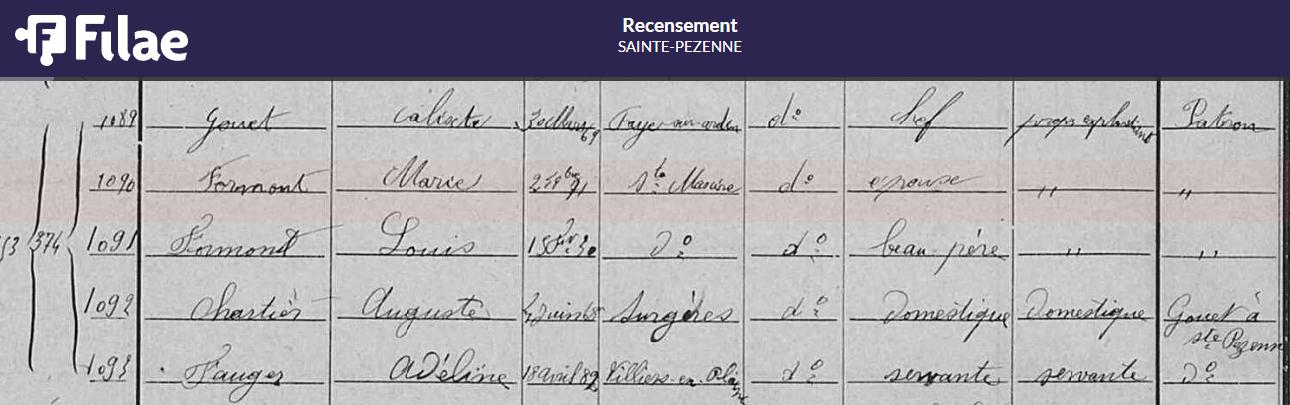 Filae
Recensement
SAINTE-PEZENNE
1089 Gouet Calixte 30 Mars 69 Faye-sur-ardin do chef propre exploitant Patron
1090 Formont Marie Ste Macrine do épouse " "
374 1091 Formont Louis do do beau-père " "
1092 Chartier Auguste Juin 68 Surgères do Domestique Domestique Gouet à
ste Pezenne
1093 Fauger Adéline 18 avril 82 Villiers-en-Plaine do servante servante do